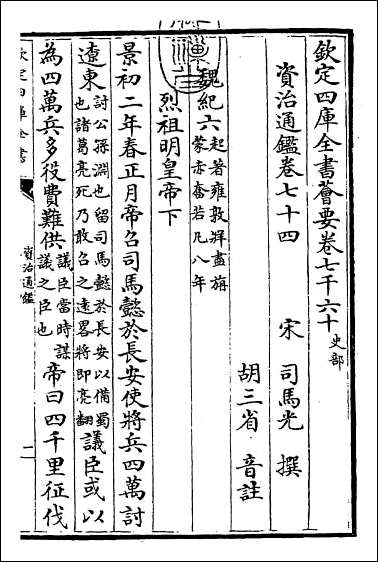 欽定四庫全書薈要卷七千六十 史部
資治通鑑卷七十四
宋 司馬光 撰
胡三省 音註
魏紀六 起著雍敦牂盡旃
蒙赤奮若凡八年
烈祖明皇帝下
景初二年春正月帝召司馬懿於長安使將兵四萬討
遼東 討公孫淵也留司馬懿於長安以備蜀
也諸葛亮死乃敢召之遠畧將即亮翻 議臣或以
為四萬兵多役費難供 議臣當時謀
議之臣也 帝曰四千里征伐
欽定四庫全書
資治通鑑
二